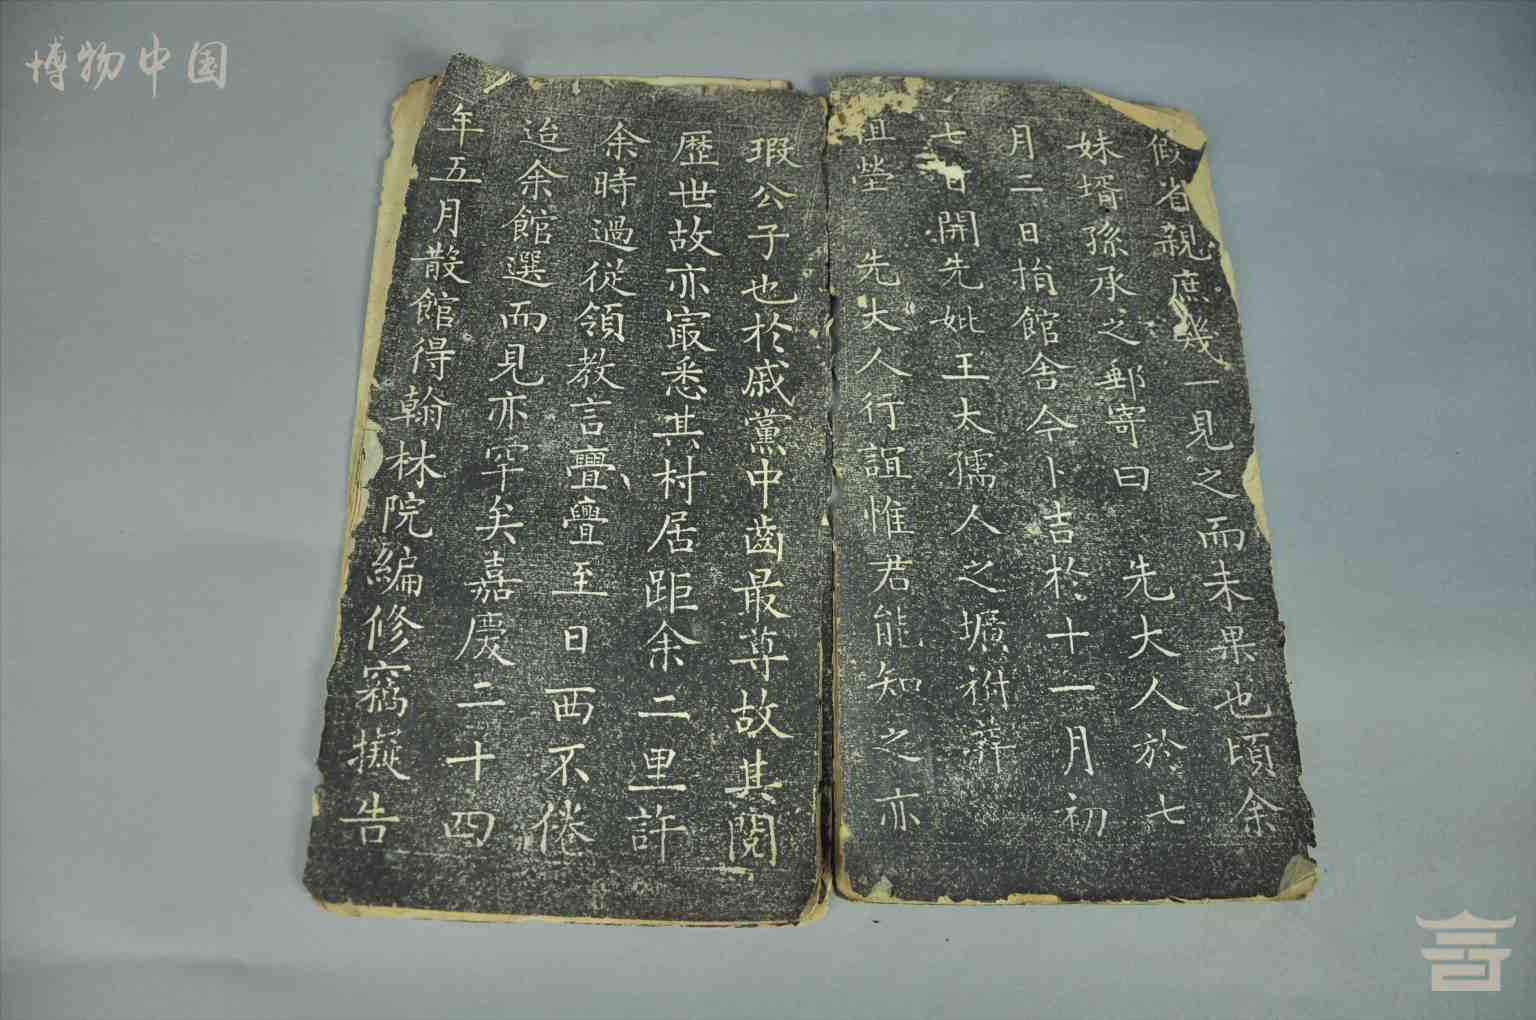 博物中国
瑕公子也於戚黨中齒最尊故其閱
歷世故亦㝡悉其村居距余二里許
余時過從領教言亹亹至日西不倦
迨余館選而見亦罕矣嘉慶二十四
年五月散館得翰林院編修竊擬告
假省親庶幾一見之而未果也頃余
妹壻孫承之郵寄曰 先大人於七
月二日捐館舍今卜吉於十一月初
七日開先妣王大孺人之壙祔葬
祖塋 先大人行誼惟君能知之亦